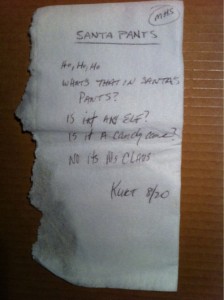 MAS
SANTA PANTS
Ho, Ho, Ho
WHATS THAT IN SANTA'S
PANTS?
IS it AN ELF?
Is it A CANDY CANE?
NO its His CLAUS
KURT 8/20